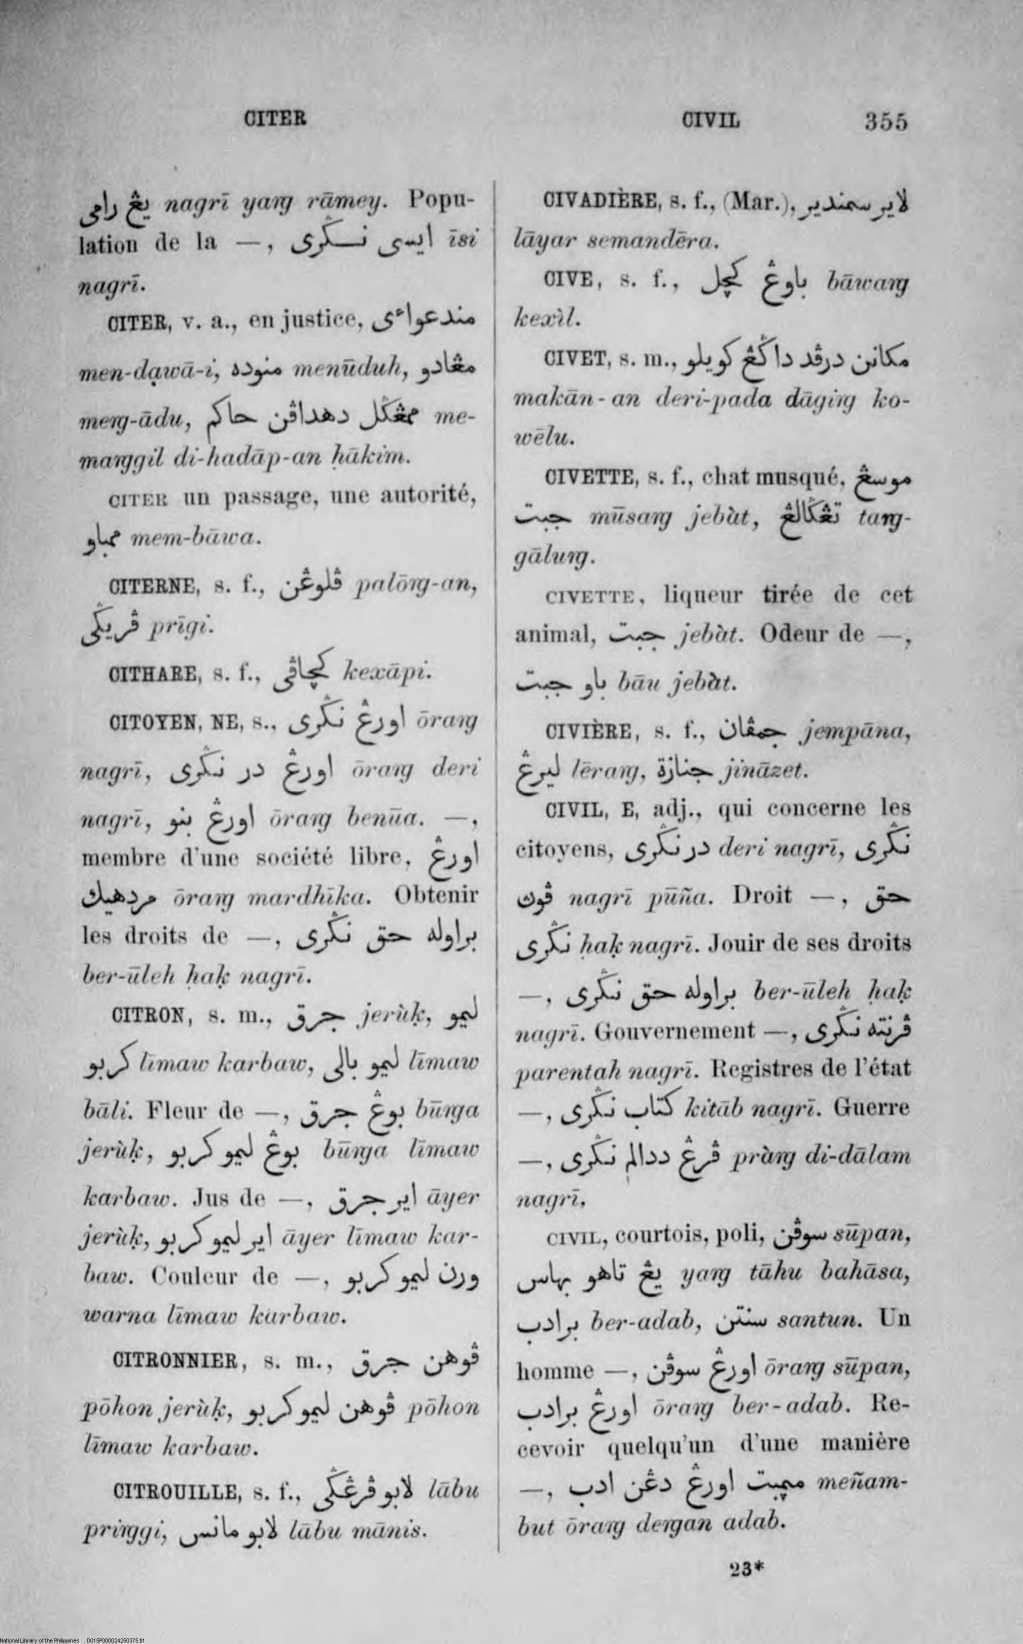 CITER
CIVIL
355
يڠ رامى nagrī yaƞ rāmey. Popu-
lation de la —, ايسى نڬرى īsi
nagrī.
CITER, v. a., en justice, مندعواءى
men-daֽwā-i, منوده menūduh, مڠادو
meƞ-ādu, ممڠݢل دهداڤن حاكم me-
maƞgil di-hadāp-an ḥākim.
CITER un passage, une autorité,
ممباو mem-bāwa.
CITERNE, s. f., ڤلوڠن palōƞ-an,
ڤريڬى prīgi.
CITHARE, s. f., كچاڤى kexāpi.
CITOYEN, NE, s., اورڠ نڬرى ōraƞ
nagrī, اورڠ در نڬرى ōraƞ deri
nagrī, اورڠ بنو ōraƞ benūa. —,
membre d'une société libre, اورڠ
مردهيك ōraƞ mardhīka. Obtenir
les droits de —, براوله حق نڬرى
ber-ūleh ḥaḳ nagrī.
CITRON, s. m., جرق jerùḳ, ليمو
كربو līmaw karbaw, ليمو بالى līmaw
bāli. Fleur de —, بوڠ جرق būƞa
jerùḳ, بوڠ ليمو كربو būƞa līmaw
karbaw. Jus de —, اير جرق āyer
jerùḳ, اير ليمو كربو āyer līmaw kar-
baw. Couleur de —, ورن ليمو كربو
warna līmaw karbaw.
CITRONNIER, s. m., ڤوهن جرق
pōhon jerùḳ, ڤوهن ليمو كربو pōhon
līmaw karbaw.
CITROUILLE, s. f., لابو ڤرڠݢى lābu
priƞgi, لابو مانس lābu mānis.
CIVADIÈRE, s. f., (Mar.), لاير سمندير
lāyar semandēra.
CIVE, s. f., باوڠ كچل bāwaƞ
kexìl.
CIVET, s. m., مكانن درڤد داڬڠ كويلو
makān-an deri-pada dāgiƞ ko-
wēlu.
CIVETTE, s. f., chat musqué, موسڠ
جبت mūsaƞ jebàt, تڠݢالڠ taƞ-
gāluƞ.
CIVETTE, liqueur tirée de cet
animal, جبت jebàt. Odeur de —,
باو جبت bāu jebàt.
CIVIÈRE, s. f., جمڤان jempāna,
ليرڠ lēraƞ, جنازة jināzet.
CIVIL, E, adj., qui concerne les
citoyens, در نڬرى deri nagrī, نڬرى
ڤوڽ nagrī pūña. Droit —, حق
نڬرى ḥaḳ nagrī. Jouir de ses droits
—, براوله حق نڬرى ber-ūleh ḥaḳ
nagrī. Gouvernement —, ڤرنته نڬرى
parentah nagrī. Registres de l'état
—, كتاب نڬرى kitāb nagrī. Guerre
—, ڤرڠ ددالم نڬرى pràƞ di-dālam
nagrī.
CIVIL, courtois, poli, سوڤن sūpan,
يڠ تاهو بهاس yaƞ tāhu bahāsa,
برادب ber-adab, سنتن santun. Un
homme —, اورڠ سوڤن ōraƞ sūpan,
اورڠ برادب ōraƞ ber-adab. Re-
cevoir quelqu'un d'une manière
—, مڽمبت اورڠ دڠن ادب meñam-
but ōraƞ deƞan adab.
23*
National Library of the Philippines